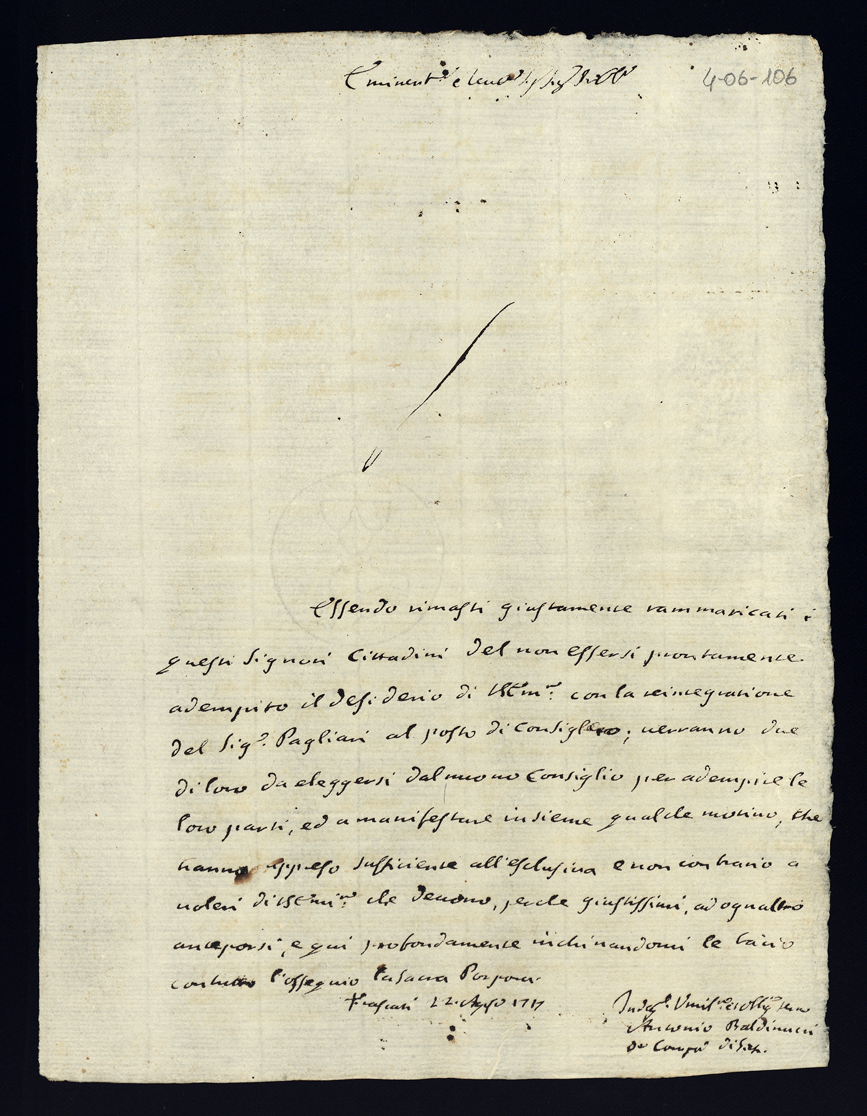 Eminent.mo e Reud.mo Sig.r Sig.r
4-06-106
Essendo rimasti giustamente rammaricati i
questi Signori Cittadini del non essersi prontamente
adempito il desiderio di V. Em.za con la reintegratione
del Sig.r Pagliari al posto di Consigliero; uerranno due
di loro da eleggersi dal nuouo Consiglio per adempire le
loro parti, ed a manifestare insieme qualche motiuo, che
hanno appreso sufficiente all'esclusiua e non contrario a
uoleri di V. Em.za che deuono, perche giustissimi, ad ogn'altro
anteporsi, e qui profondamente inchinandomi le bacio
con tutto l'ossequio la Sacra Porpora.
Frascati 22 Agosto 1717
Indeg.o Vmil.mo et Obblig.mo Seruo
Antonio Baldinucci
D.a Comp.a di Giesù